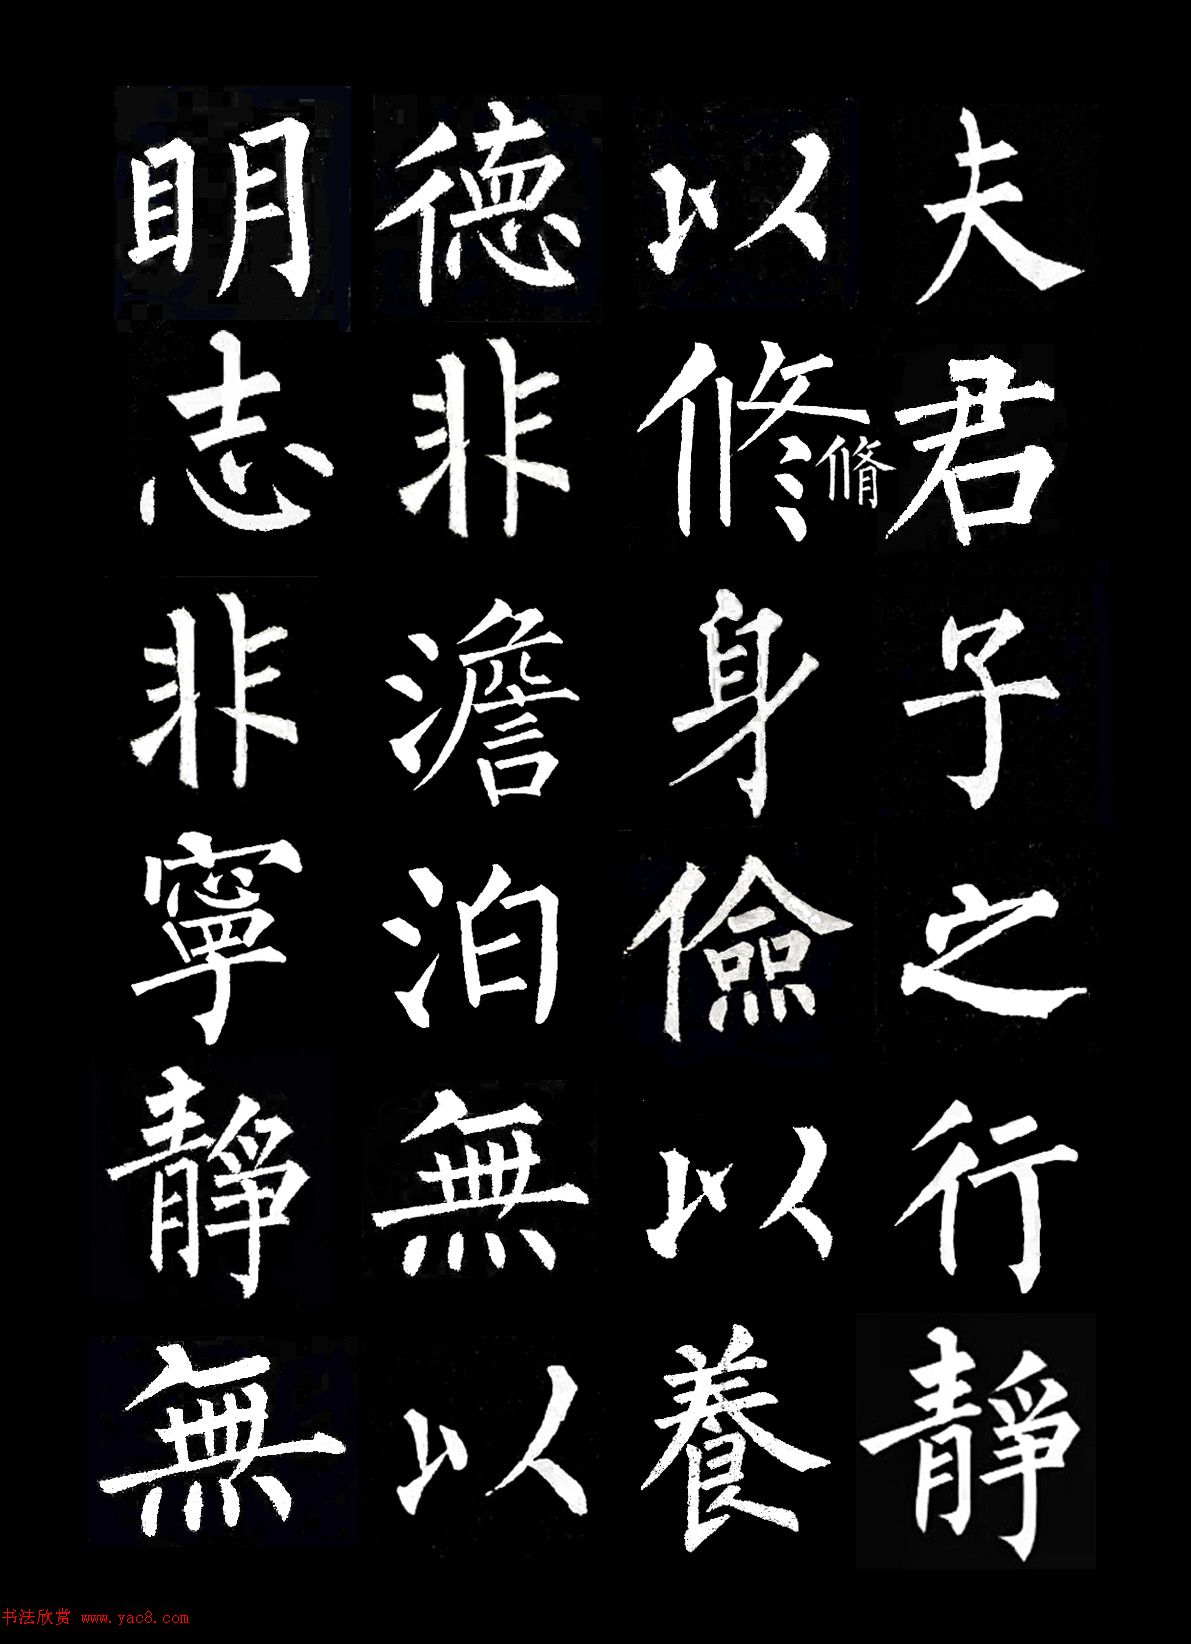 夫君子之行靜
以修脩身儉以養
德非澹泊無以
明志非寧靜無
书法欣赏 www.yac8.com